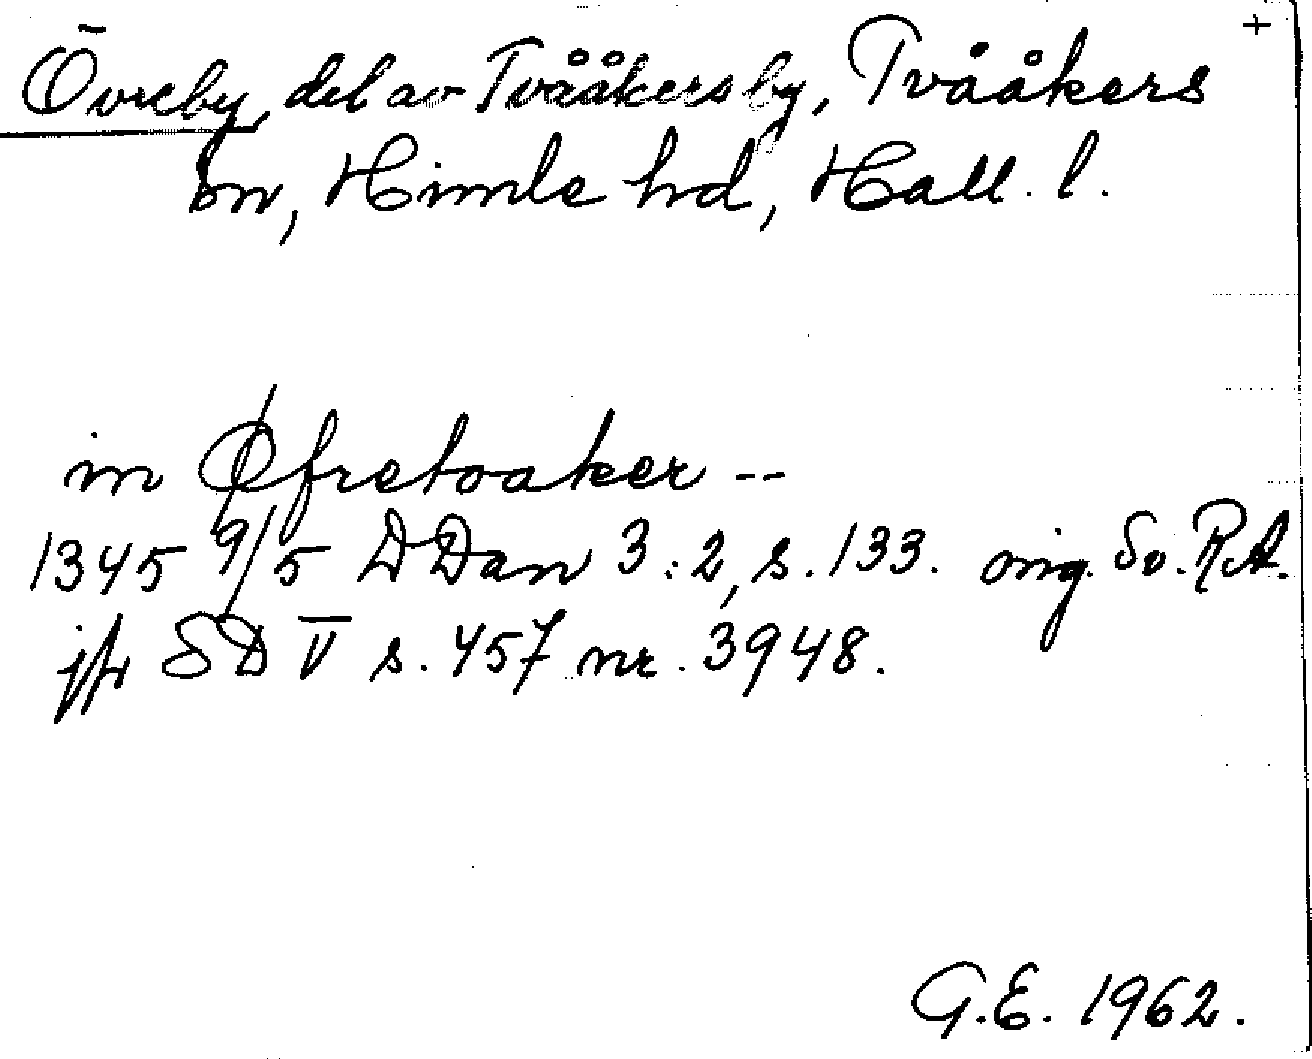 +
Övreby, del av Tvååkers by, Tvååkers
sn, Himle hd, Hall. l.
in Øfretoaker --
1345 9/5 DDan 3:2, s. 133. orig. Sv. RA.
jfr SD V s. 457 nr. 3948.
G.E. 1962.